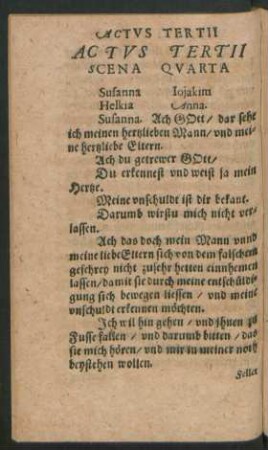 ACTVS TERTII
ACTVS TERTII
SCENA QVARTA
Susanna Iojakim
Helkia Anna.
Susanna. Ach GOtt/ dar sehe
ich meinen hertzlieben Mann/ vnd mei-
ne hertzliebe Eltern.
Ach du getrewer GOtt/
Du erkennest vnd weist ja mein
Hertze.
Meine vnschuldt ist dir bekant.
Darumb wirstu mich nicht ver-
lassen.
Ach das doch mein Mann vnnd
meine liebeEltern sich von dem falschem
geschrey nicht zusehr hetten einnhemen
lassen/ damit sie durch meine entschüldi-
gung sich bewegen liessen/ vnd meine
vnschuldt erkennen möchten.
Ich wil hin gehen/ vnd jhnen zu
Fusse fallen/ vnd darumb bitten/ das
sie mich hören/ vnd mir in meiner noth
beystehen wollen.
Fellet